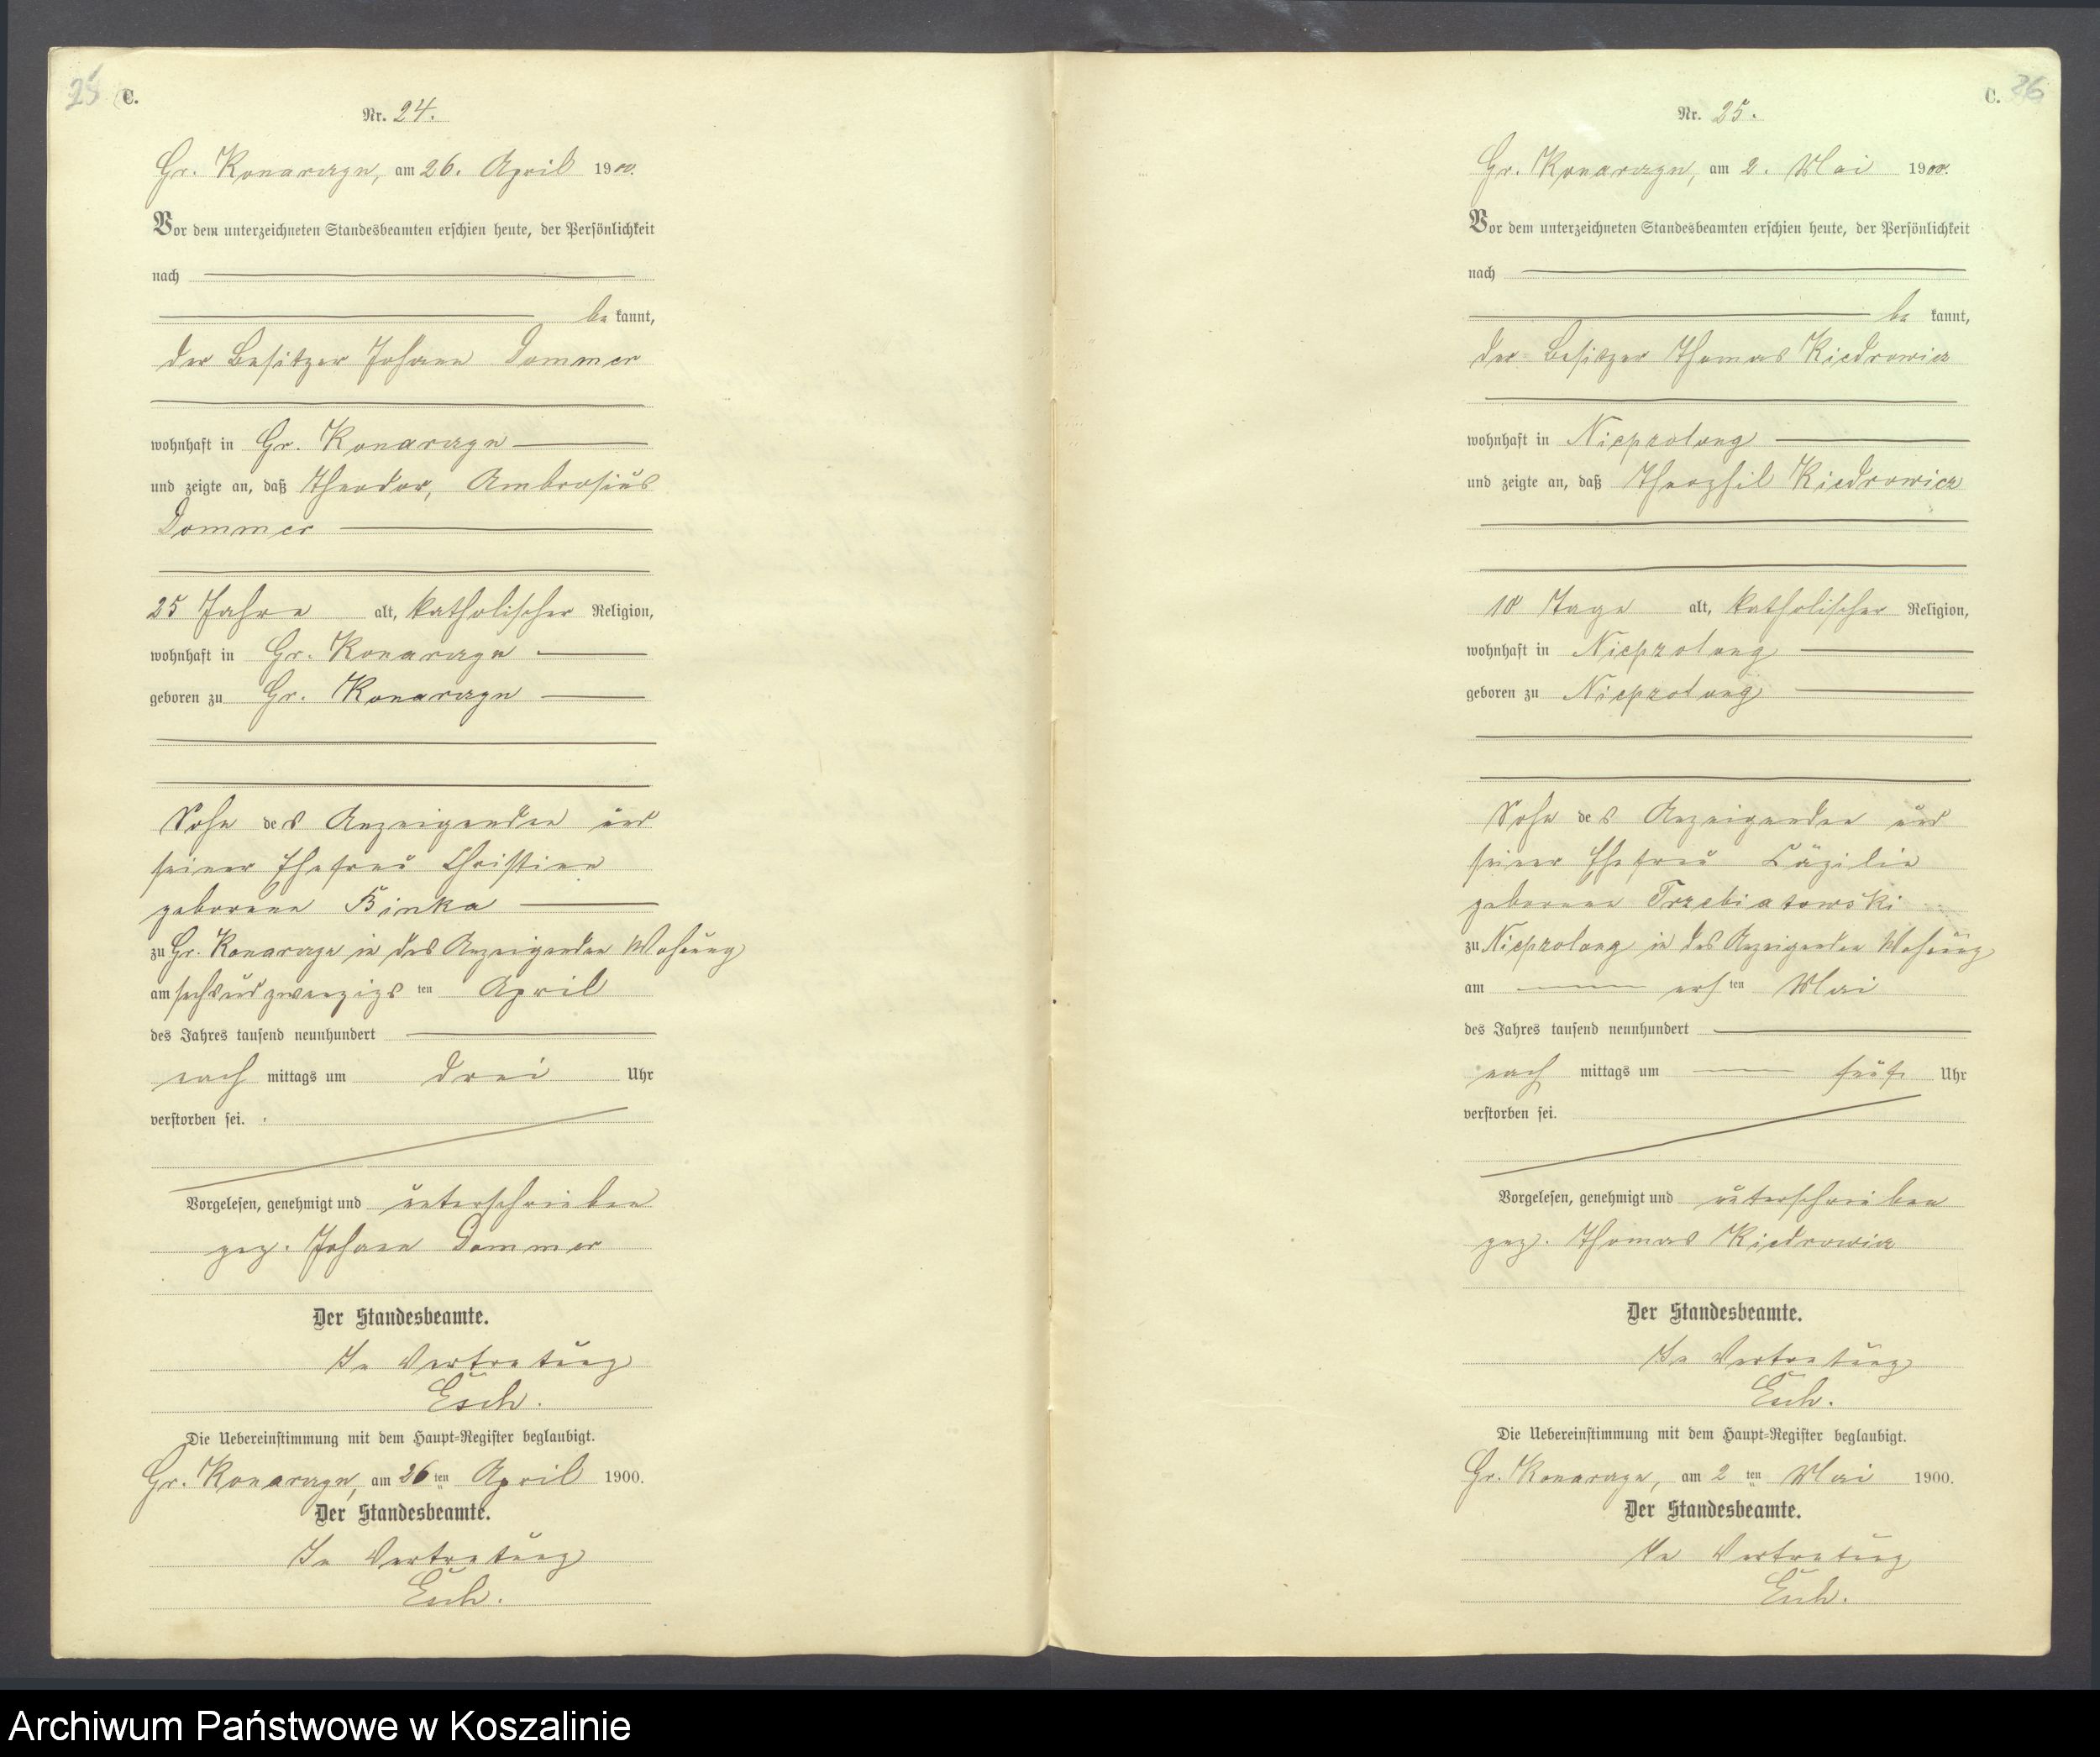 25
C.
Nr. 24.
Gr. Konarczyn, am 26. April 1900.
Vor dem unterzeichneten Standesbeamten erschien heute, der Persönlichkeit
nach
be kannt,
der Besitzer Johann Dommer
wohnhaft in Gr. Konarczyn
und zeigte an, daß Theodor, Ambrosius
Dommer
25 Jahre alt, katholischer Religion,
wohnhaft in Gr. Konarczyn
geboren zu Gr. Konarczyn
Sohn des Anzeigenden und
seiner Ehefrau Christine
geborene Binka
zu Gr. Konarczyn in des Anzeigenden Wohnung
am sechsundzwanzigs ten April
des Jahres tausend neunhundert
nach mittags um drei Uhr
verstorben sei.
Vorgelesen, genehmigt und unterschrieben
gez. Johann Dommer
Der Standesbeamte.
In Vertretung
Esch.
Die Uebereinstimmung mit dem Haupt-Register beglaubigt.
Gr. Konarczyn, am 26 ten April 1900.
Der Standesbeamte.
In Vertretung
Esch.
C. 26
Nr. 25.
Gr. Konarczyn, am 2. Mai 1900.
Vor dem unterzeichneten Standesbeamten erschien heute, der Persönlichkeit
nach
be kannt,
der Besitzer Thomas Kiedrowicz
wohnhaft in Nieprzolong
und zeigte an, daß Theophil Kiedrowicz
10 Tage alt, katholischer Religion,
wohnhaft in Nieprzolong
geboren zu Nieprzolong
Sohn des Anzeigenden und
seiner Ehefrau Cäzilie
geborene Trzebiatowski
zu Nieprzolong in des Anzeigenden Wohnung
am ersten Mai
des Jahres tausend neunhundert
nach mittags um fünf Uhr
verstorben sei.
Vorgelesen, genehmigt und unterschrieben
gez. Thomas Kiedrowicz
Der Standesbeamte.
In Vertretung
Esch.
Die Uebereinstimmung mit dem Haupt-Register beglaubigt.
Gr. Konarczyn, am 2 ten Mai 1900.
Der Standesbeamte.
In Vertretung
Esch.
Archiwum Państwowe w Koszalinie